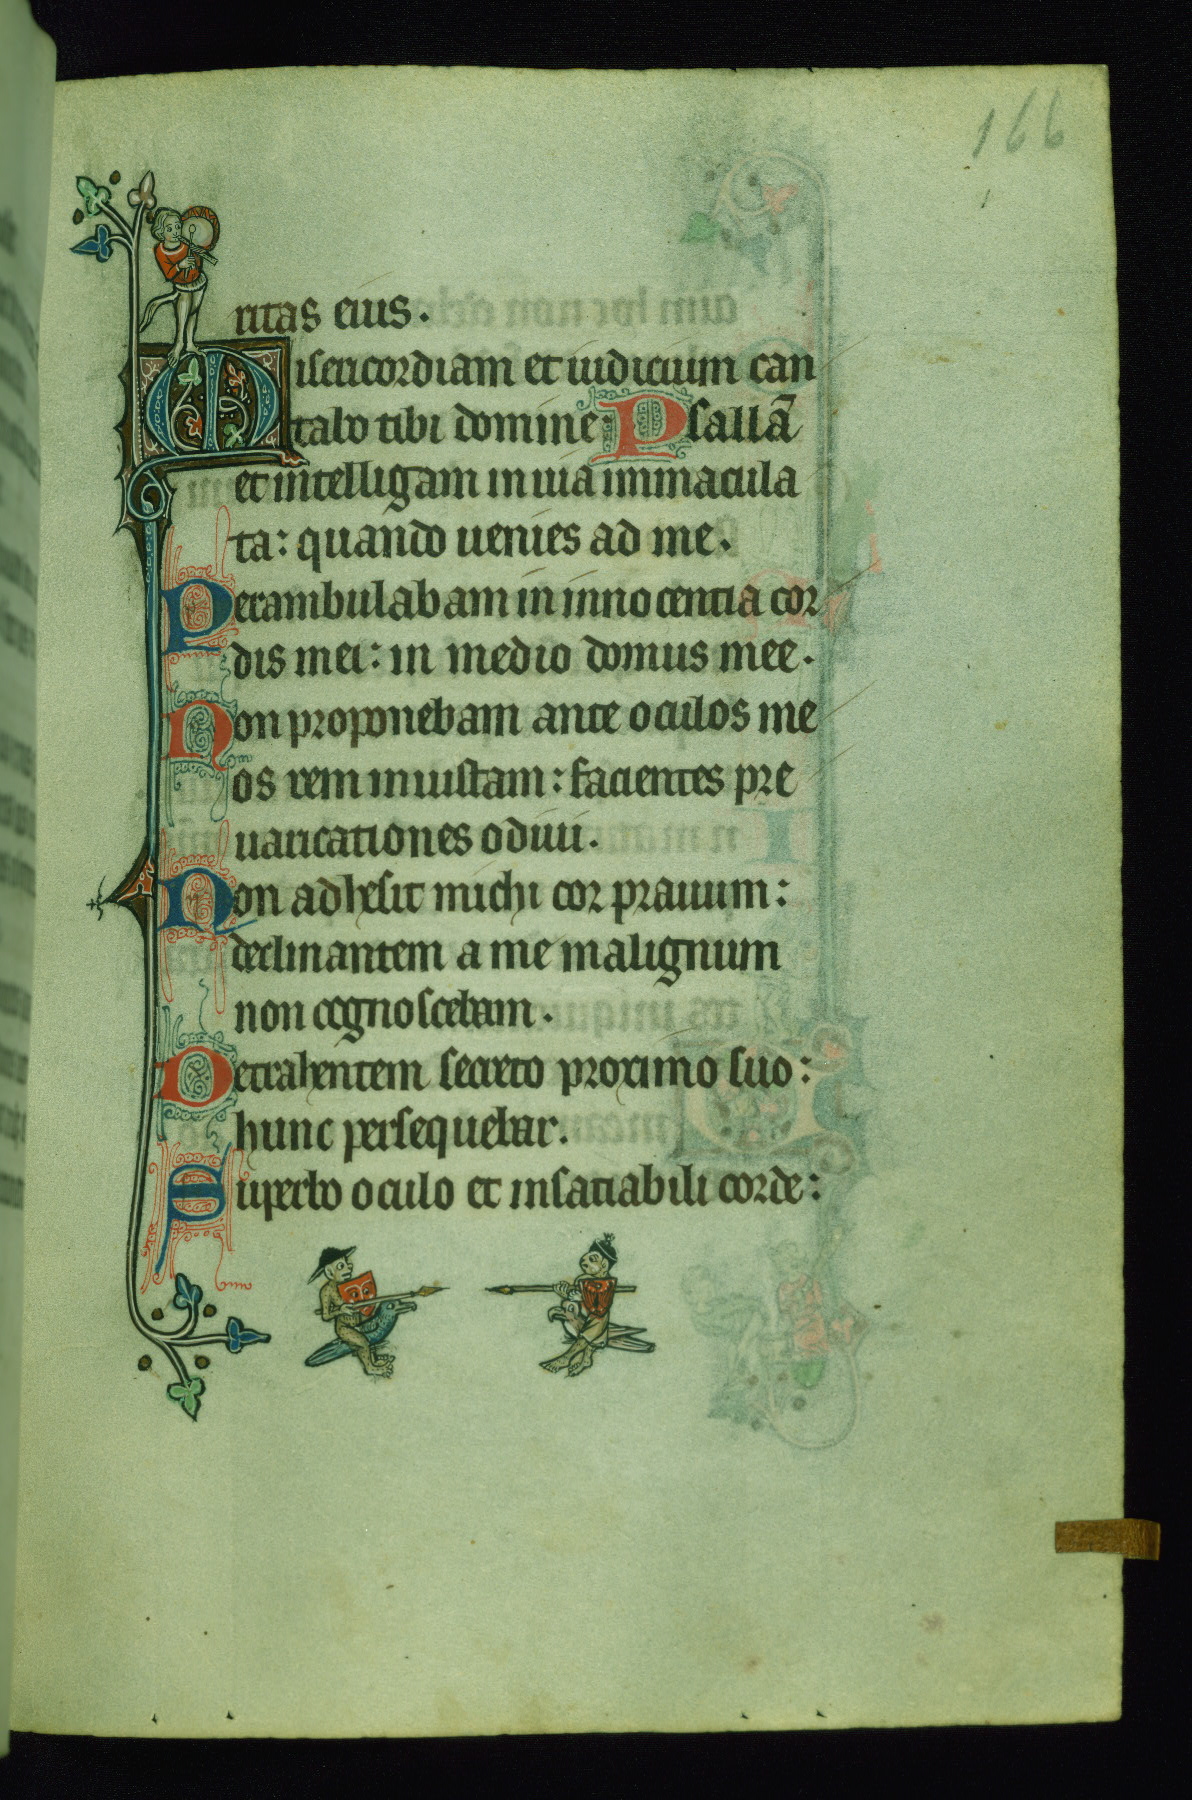 166
ritas eius.
Misericordiam et iudicium can
tabo tibi domine: Psallā
et intelligam in uia immacula
ta: quando uenies ad me.
Perambulabam in innocentia cor
dis mei: in medio domus mee.
Non proponebam ante oculos me
os rem iniustam: facientes pre
uaricationes odiui.
Non adhesit michi cor prauum:
declinantem a me malignum
non cognoscebam.
Detrahentem secreto proximo suo:
hunc persequebar.
Superbo oculo et insatiabili corde: